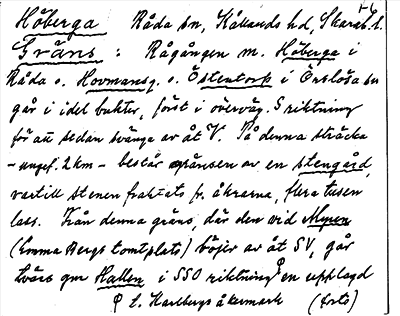 1-6
Höberga Råda sn, Kållands hd, Skarab. l.
Gräns: Rågången m. Höberga i
Råda o. Hovmansg. o. Östentorp i Örslösa sn
går i idel bukter, först i överväg. S riktning
för att sedan svänga av åt V. På denna sträcka
- ungef. 2 km - består gränsen av en stengård,
vartill stenen fraktats fr. åkrarna, flera tusen
lass. Från denna gräns, där den vid Myren
(Emma Bergs tomtplats) böjer av åt SV, går
tvärs gm Hallen i SSO riktning en upplagd
t. Karlbergs åkermark (forts)